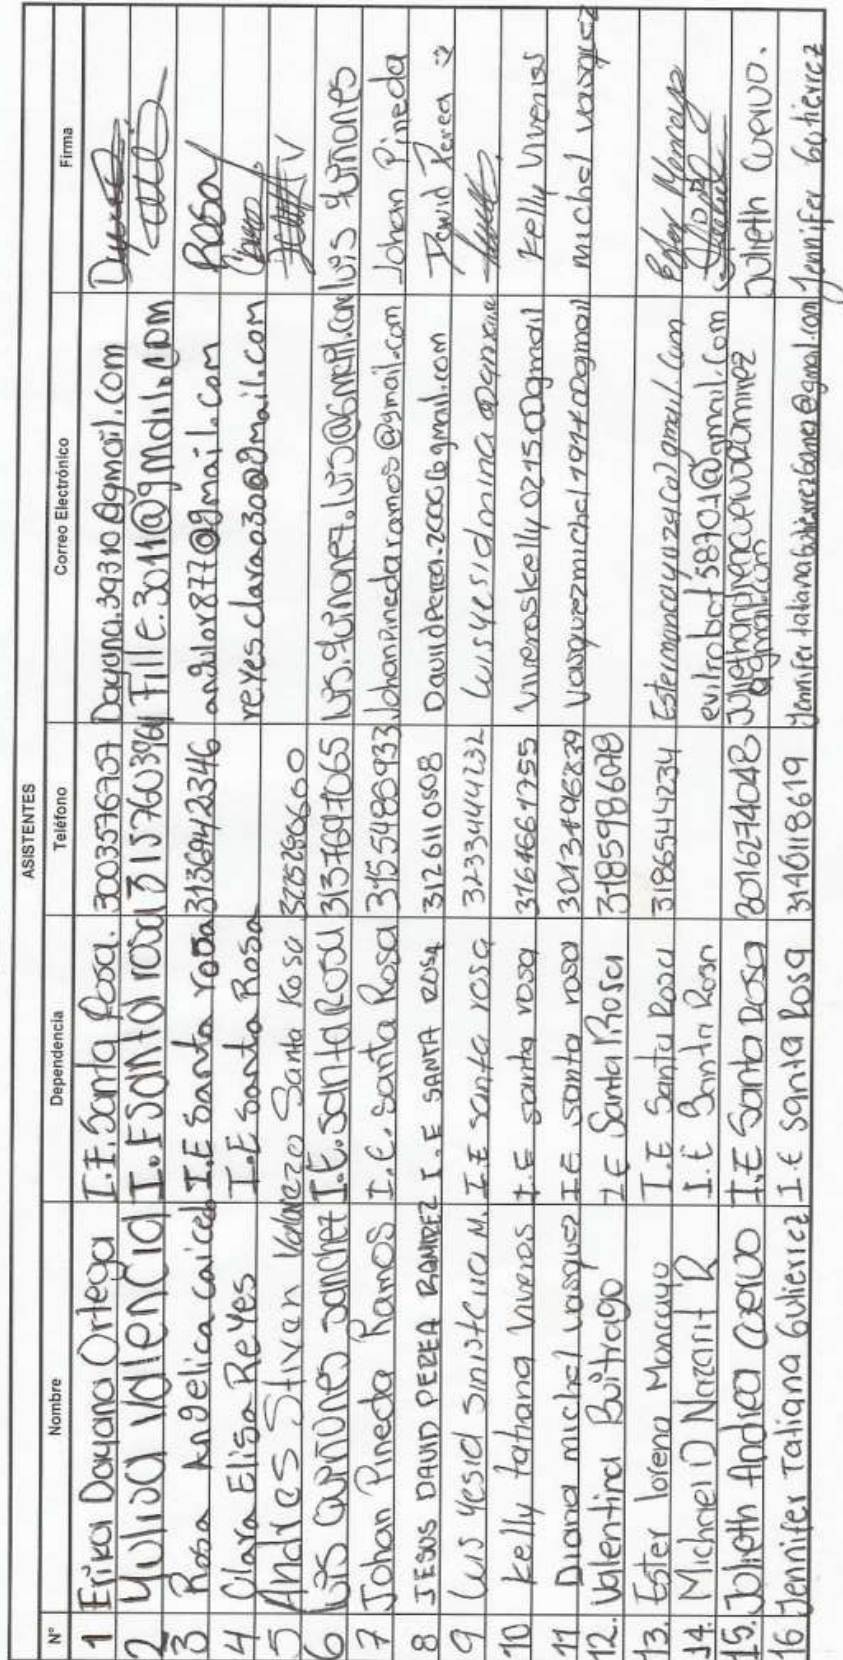 ASISTENTES
N° Nombre Dependencia Teléfono Correo Electrónico Firma
1 Erika Dayana Ortega I.E. Santa Rosa. 3003576707 Dayana.39310@gmail.com
2 Yulisa Valencia I.E Santa rosa 3157603961 Fille.3011@gmail.com
3 Rosa Angelica Caiced I.E Santa rosa 3136942346 angulor877@gmail.com Rosa
4 Clara Elisa Reyes I.E Santa Rosa reyesclara030@gmail.com
5 Andres Stivan Valarezo Santa Rosa 3225290660
6 Luis Quiñones Sanchez I.E. Santa Rosa 3137697065 luis.quinonez.luis@gmail.com luis quiñones
7 Johan Pineda Ramos I.E. santa Rosa 3155486933 Johanpinedaramos@gmail.com Johan Pineda
8 JESUS DAVID PEREA RAMIREZ I.E SANTA ROSA 3126110508 DavidPerea.2006@gmail.com David Perea
9 Luis Yesid Sinisterra M. I.E santa rosa 3233444232 luisyesidmina@gmail
10 Kelly tatiana Viveros I.E santa rosa 3164664755 Viveroskelly0215@gmail Kelly Viveros
11 Diana michel vasquez I E santa rosa 3013496839 Vasquezmichel1914@gmail michel vasquez
12. Valentina Buitrago I E Santa Rosa 3185986078
13. Ester lorena Moncayo I.E Santa Rosa 3186544234 Estermoncayo29@gmail.com Ester Moncayo
14. Michael D Nazarit R I.E Santa Rosa evilrobot58701@gmail.com
15. Julieth Andrea Cuervo I.E Santa Rosa 3016274048 Juliethandreacuervoraminez @gmail.com Julieth Cuervo.
16 Jennifer Tatiana Gutierrez I E santa Rosa 3140118619 Jennifertatianagutierrezgamez@gmail.com Jennifer Gutierrez